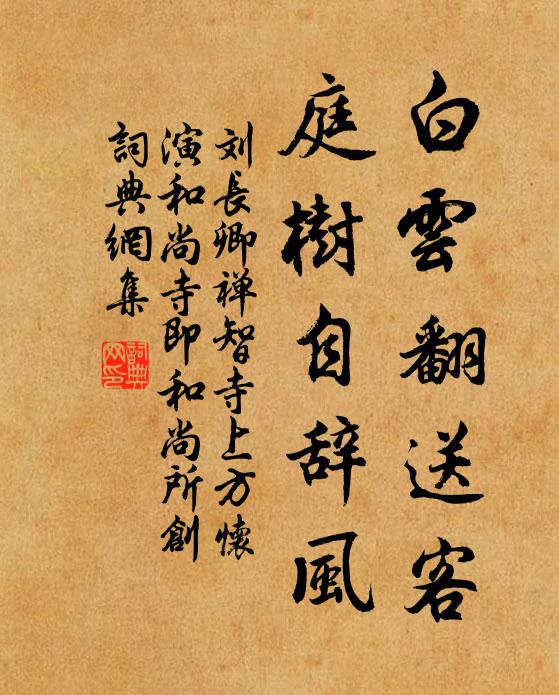 白雲翻送客
庭樹自辞風
刘長卿禅智寺上方懷
演和尚寺即和尚所創
詞典網集
詞典
网印